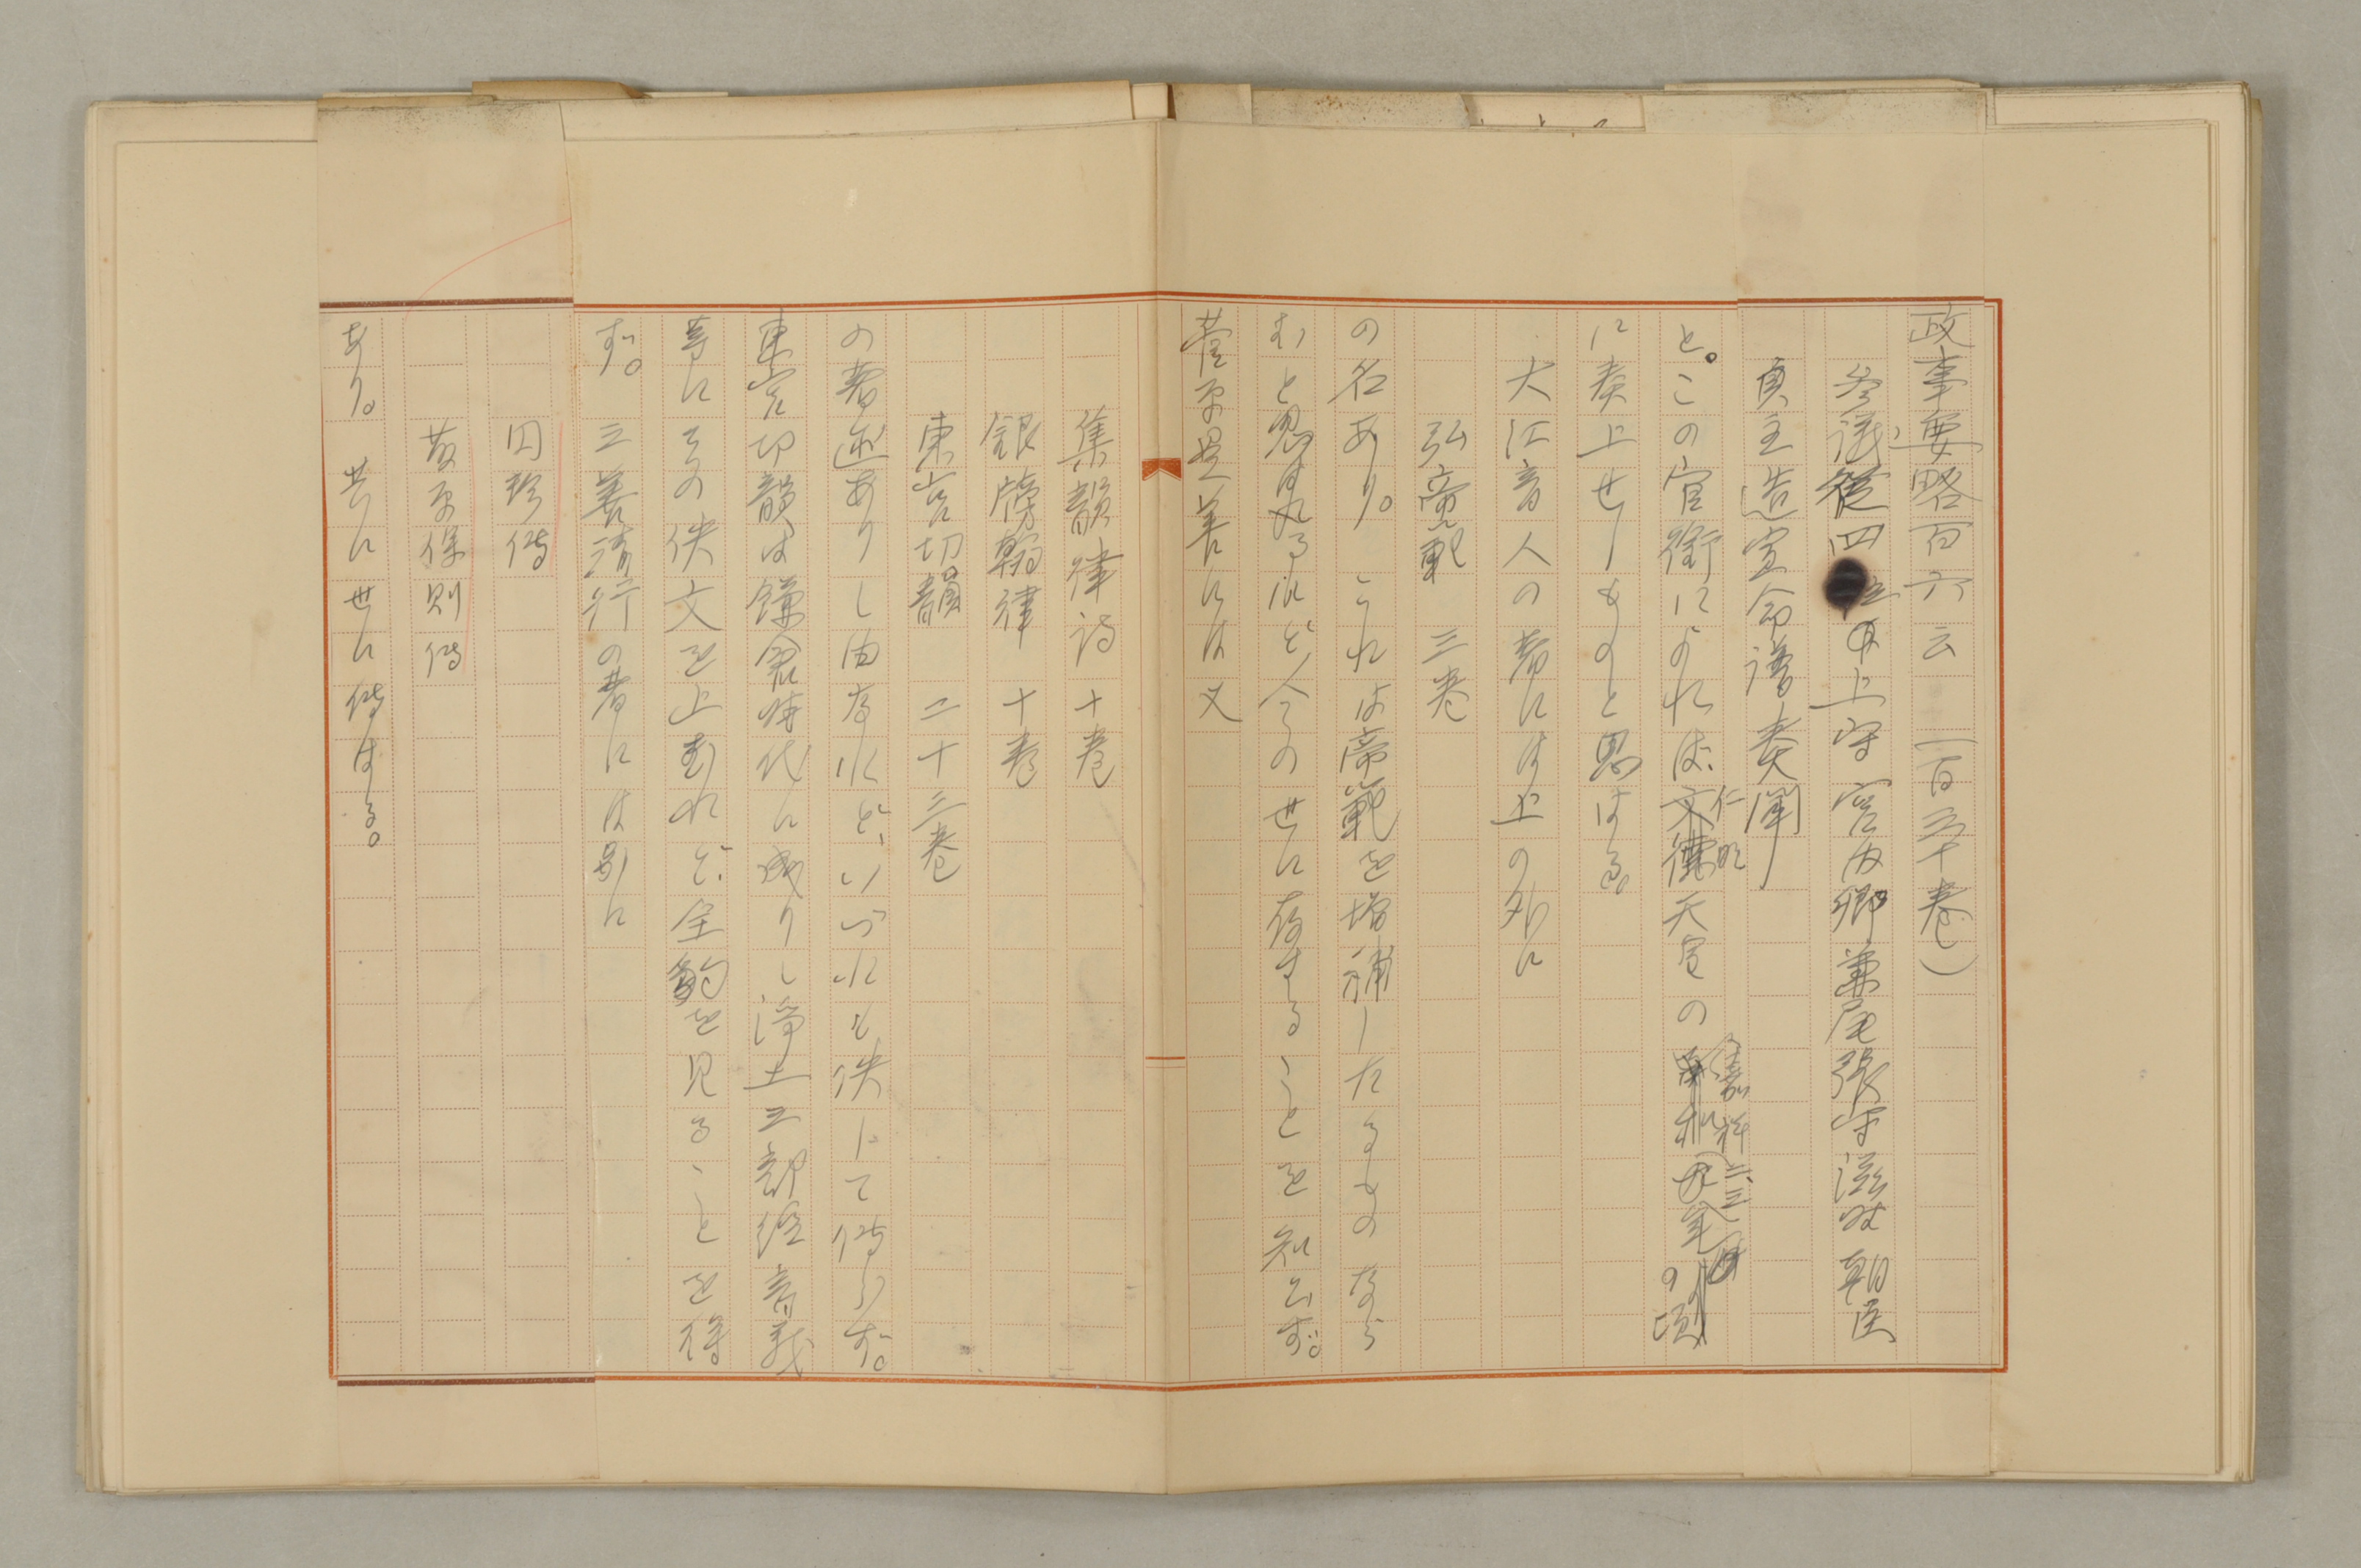 政事要略百六云 一百三十巻)
参議従四 上守宮内卿兼尾張守滋野朝臣
貞主造宣命譜奏聞
と。この官銜によれば、仁明天皇の嘉祥二、三の頃
に奏上せしものと思はる。
大江音人の著には上の外に
弘帝範 三巻
の名あり。これは帝範を増補したるものなら
むと思はるれど、今の世に存することを知らず。
菅原是善には又
集韻律詩 十巻
銀牓翰律 十巻
東宮切韻 二十三巻
の著述ありし由なれど、いづれも佚して傳らず。
東宮切韻は鎌倉時代に成りし淨土三部経音義
等にその佚文を止むれど、全豹を見ることを得
ず。三善清行の著には別に
円珍傳
藤原保則傳
あり。共に世に傳はる。